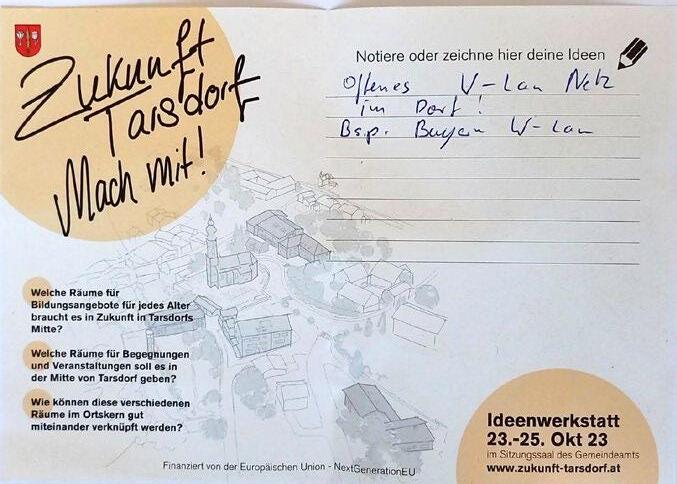 Zukunft
Tarsdorf
Mach mit!
Notiere oder zeichne hier deine Ideen
Offenes W-Lan Netz
im Dorf!
Bsp. Bayern W-Lan
Welche Räume für
Bildungsangebote für jedes Alter
braucht es in Zukunft in Tarsdorfs
Mitte?
Welche Räume für Begegnungen
und Veranstaltungen soll es in
der Mitte von Tarsdorf geben?
Wie können diese verschiedenen
Räume im Ortskern gut
miteinander verknüpft werden?
Finanziert von der Europäischen Union - NextGenerationEU
Ideenwerkstatt
23.-25. Okt 23
im Sitzungssaal des Gemeindeamts
www.zukunft-tarsdorf.at